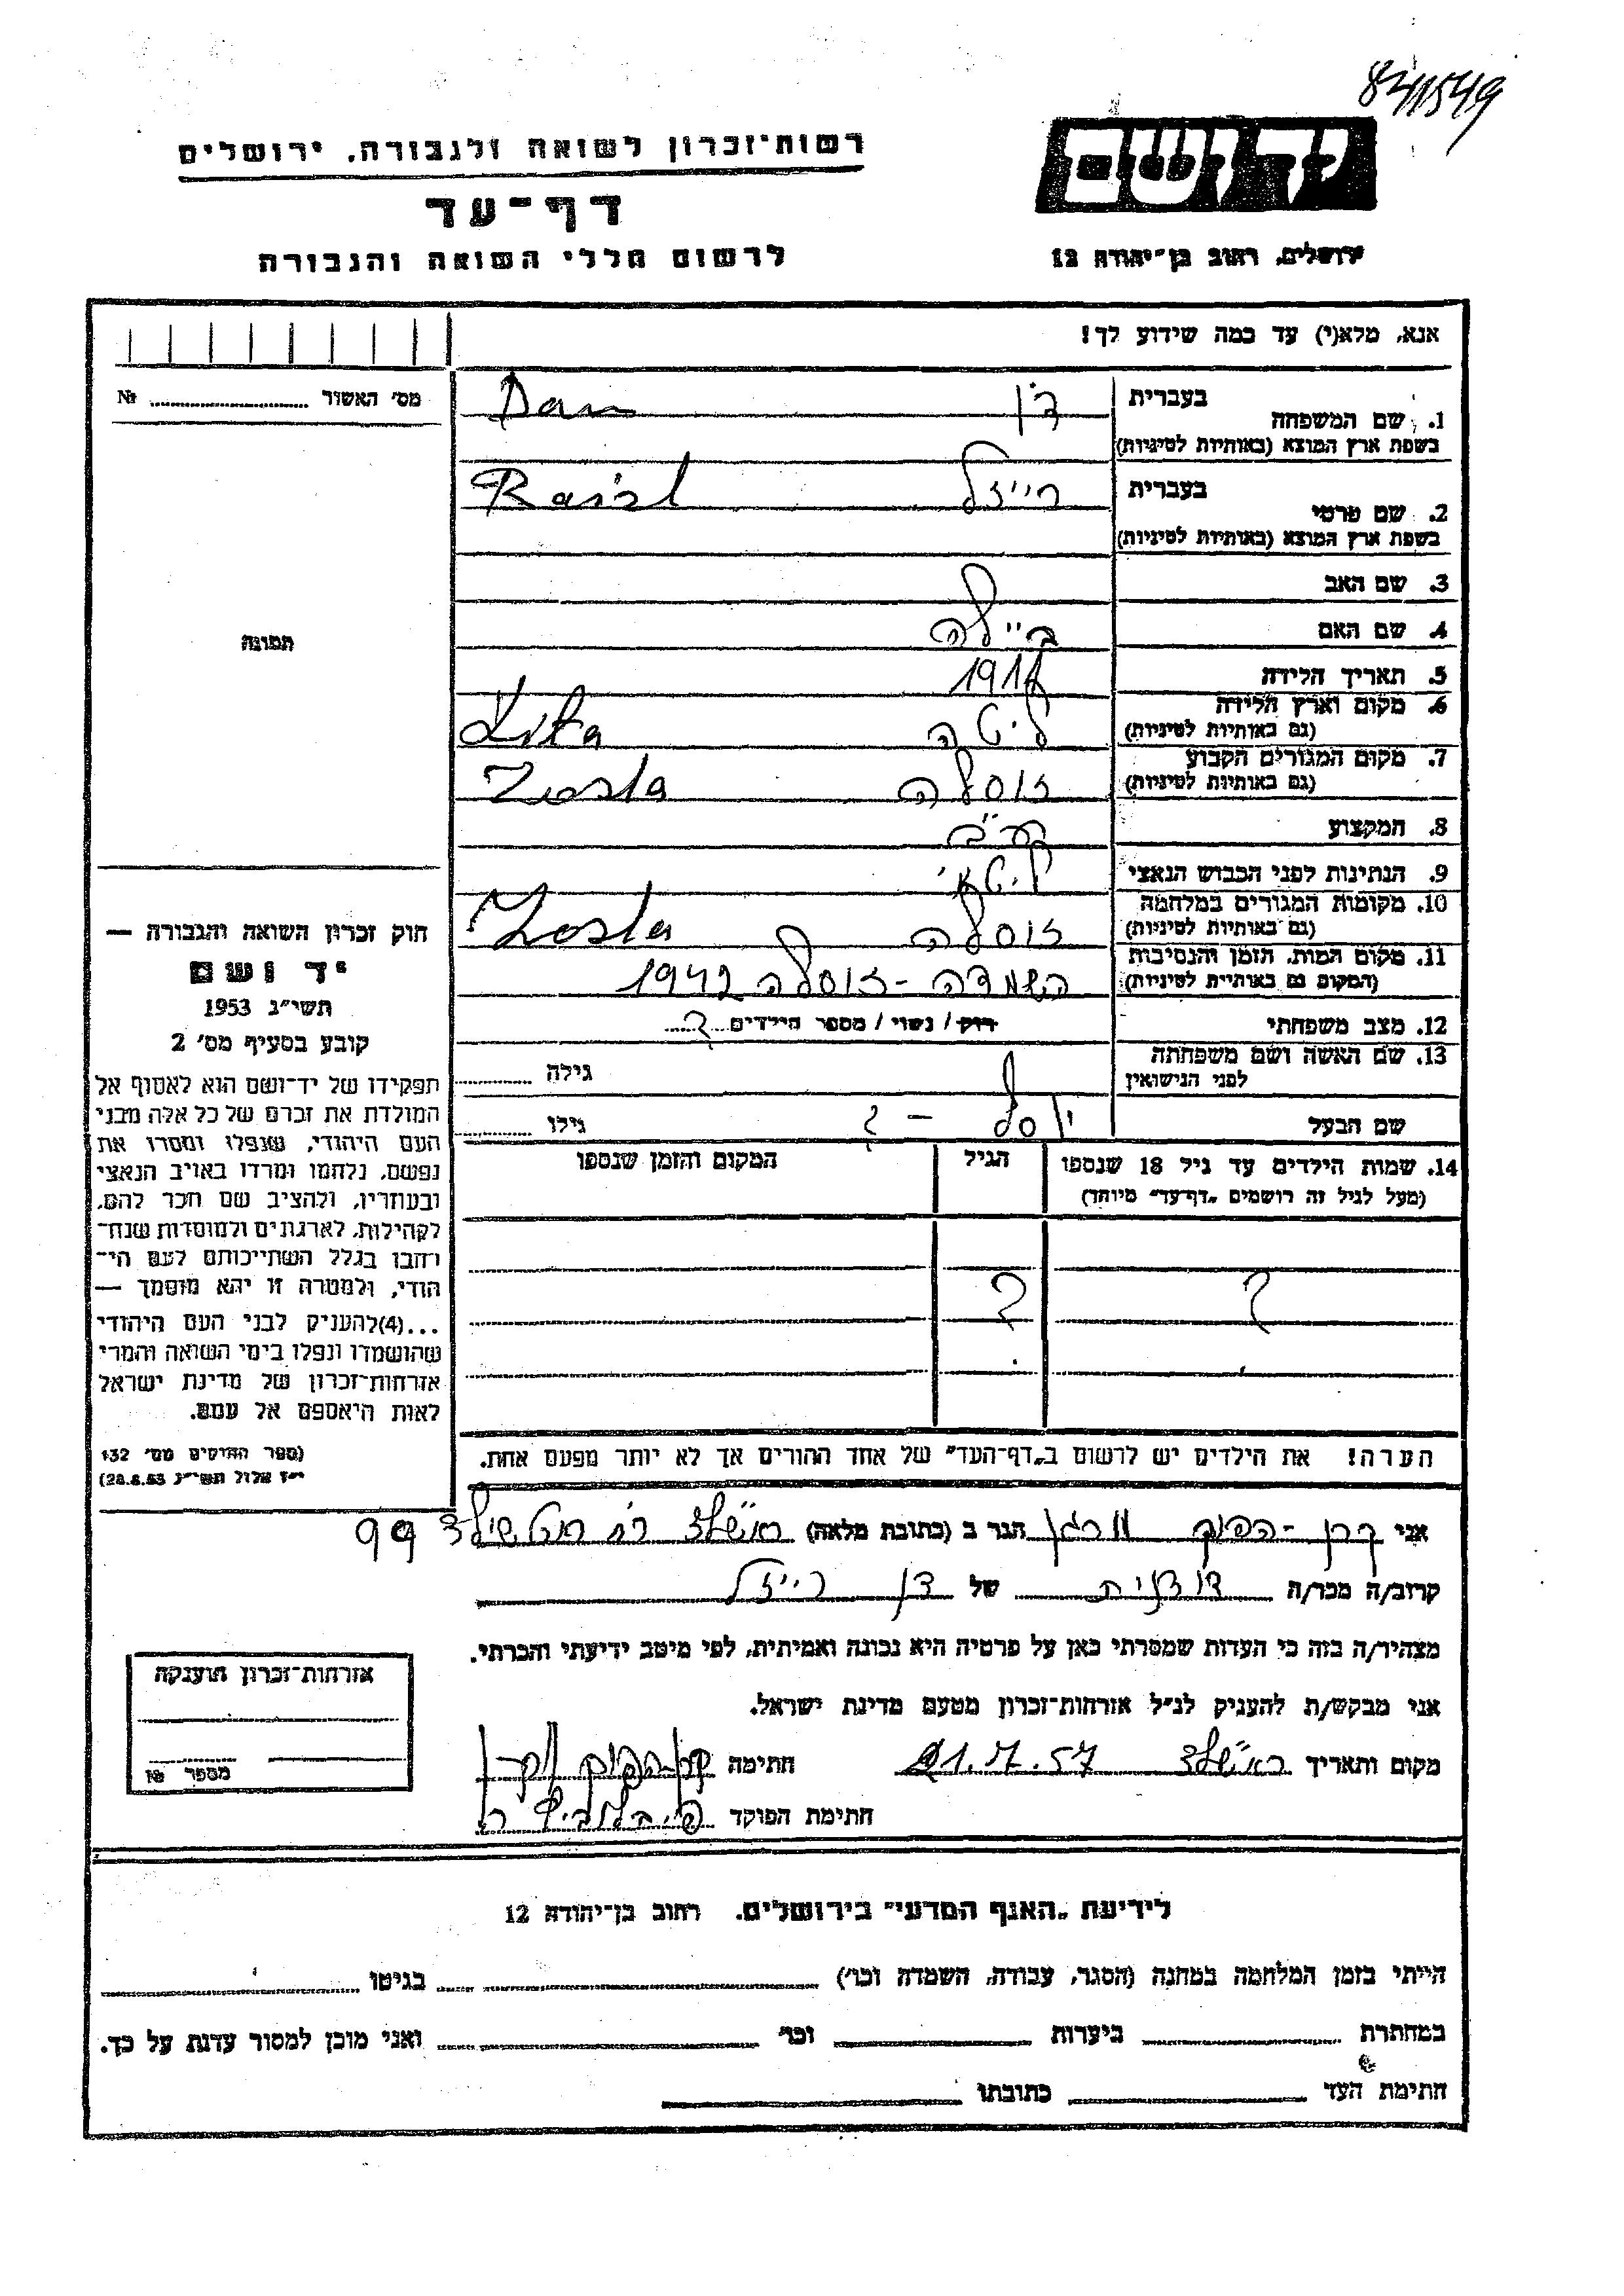 רשות־זכרון לשואה ולגבורה, ירושלים
דף־עד
לרשום חללי השואה והגבורה
יד ושם
ירושלים, רחוב בן־יהודה 12
אנא, מלא(י) עד כמה שידוע לך!
מס' האשור № 
1. שם המשפחה בעברית דן Dan
בשפת ארץ המוצא (באותיות לטיניות)
2. שם פרטי בעברית רייזל Raizl
בשפת ארץ המוצא (באותיות לטיניות)
3. שם האב
4. שם האם ביילה
5. תאריך הלידה
6. מקום וארץ הלידה ליטה Lita
(גם באותיות לטיניות)
7. מקום המגורים הקבוע זוסלה Zosla
(גם באותיות לטיניות)
8. המקצוע
9. הנתינות לפני הכבוש הנאצי ליטאי
10. מקומות המגורים במלחמה זוסלה Zosla
(גם באותיות לטיניות)
11. מקום המות, הזמן והנסיבות השמדה - זוסלה 1942
(המקום גם באותיות לטיניות)
12. מצב משפחתי רווק / נשוי / מספר הילדים ?
13. שם האשה ושם משפחתה גילה
לפני הנישואין
שם הבעל יוסף - ? גילו
14. שמות הילדים עד גיל 18 שנספו הגיל המקום והזמן שנספו
(מעל לגיל זה רושמים „דף־עד" מיוחד)
? ?
הערה! את הילדים יש לרשום ב„דף־העד" של אחד ההורים אך לא יותר מפעם אחת.
תמונה
חוק זכרון השואה והגבורה —
יד ושם
תשי"ג 1953
קובע בסעיף מס' 2
תפקידו של יד־ושם הוא לאסוף אל
המולדת את זכרם של כל אלה מבני
העם היהודי, שנפלו ומסרו את
נפשם, נלחמו ומרדו באויב הנאצי
ובעוזריו, ולהציב שם וזכר להם,
לקהילות, לארגונים ולמוסדות שנח־
רבו בגלל השתייכותם לעם הי־
הודי, ולמטרה זו יהא מוסמך —
...(4)להעניק לבני העם היהודי
שהושמדו ונפלו בימי השואה והמרי
אזרחות־זכרון של מדינת ישראל
לאות היאספם אל עמם.
(ספר החוקים מס' 132
י"ז אלול תשי"ג 28.8.53)
אני הגר ב (כתובת מלאה) ראשל"צ רח' רוטשילד 99
קרוב/ה מכר/ה של דן רייזל
מצהיר/ה בזה כי העדות שמסרתי כאן על פרטיה היא נכונה ואמיתית, לפי מיטב ידיעתי והכרתי.
אני מבקש/ת להעניק לנ"ל אזרחות־זכרון מטעם מדינת ישראל.
מקום ותאריך ראשל"צ חתימה
חתימת הפוקד
אזרחות־זכרון הוענקה
מספר №
לידיעת „האגף המדעי" בירושלים, רחוב בן־יהודה 12
הייתי בזמן המלחמה במחנה (הסגר, עבודה, השמדה וכו') בגיטו
במחתרת ביערות וכו' ואני מוכן למסור עדות על כך.
חתימת העד כתובתו